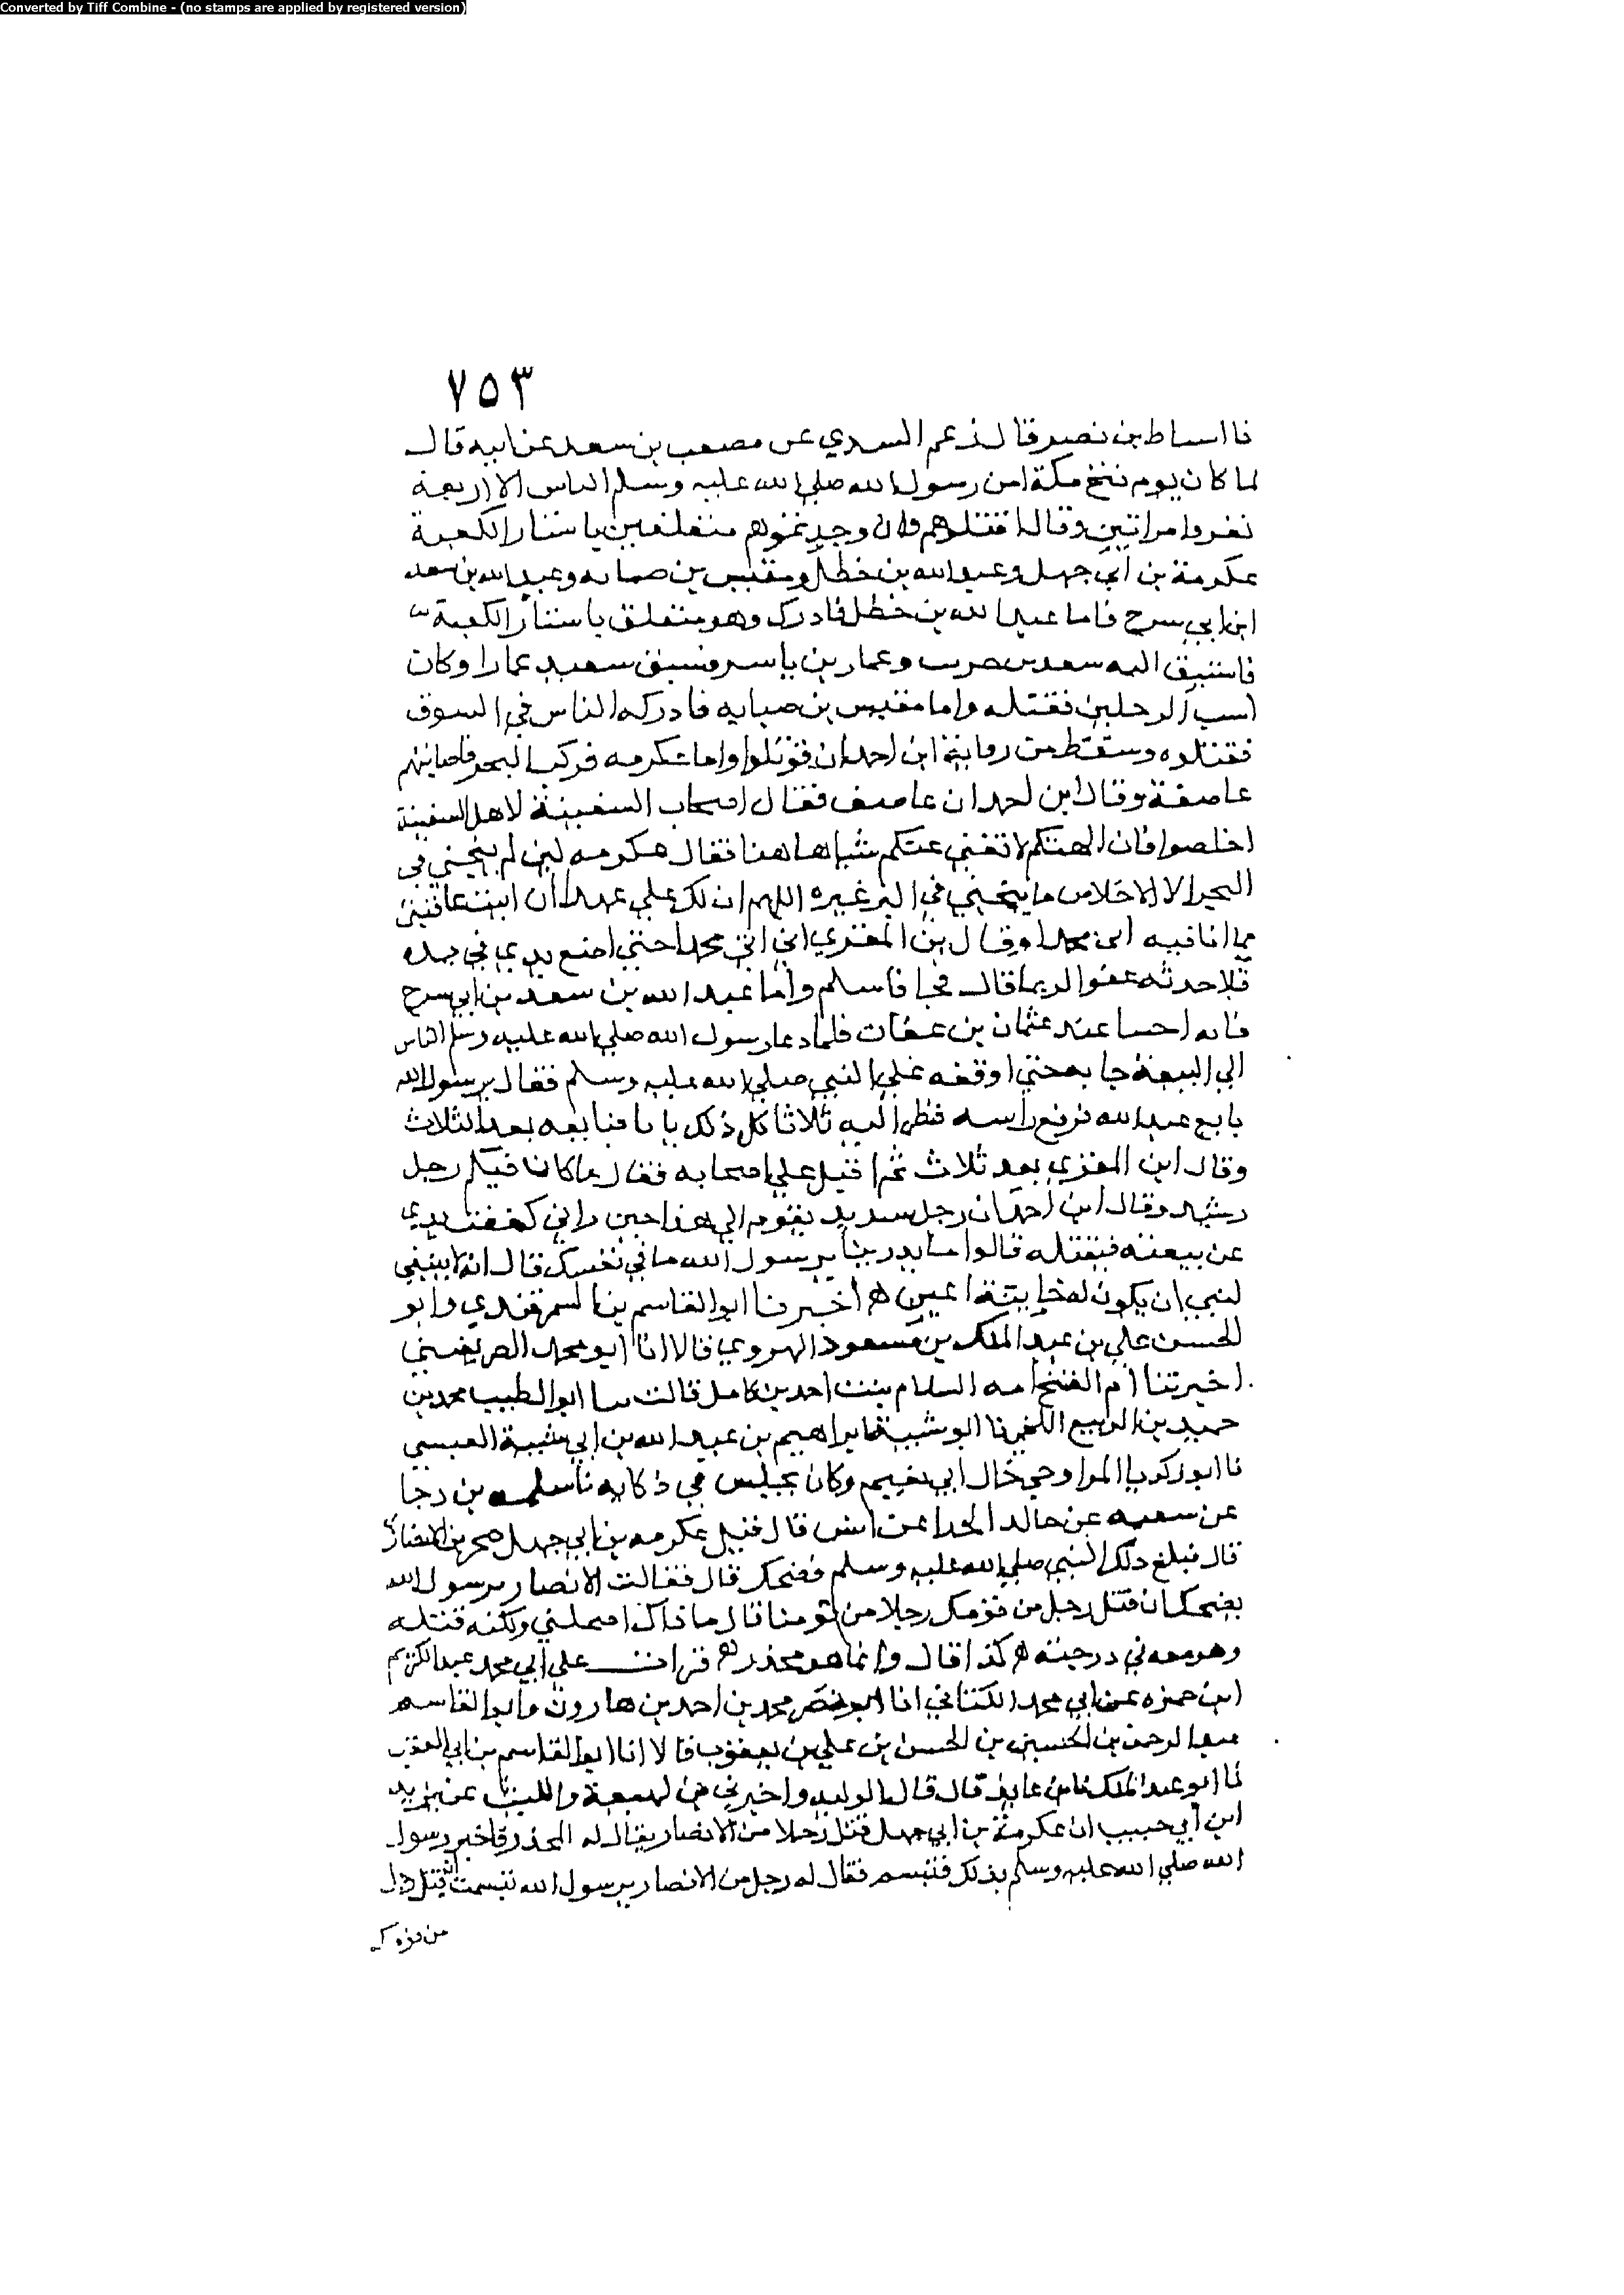 Converted by Tiff Combine - (no stamps are applied by registered version)
٧٥٣
نا اسباط بن نصر قال زعم السدي عن مصعب بن سعد عن ابيه قال
لما كان يوم فتح مكة امن رسول الله صلي الله عليه وسلم الناس الا اربعة
نفر وامراتين وقال اقتلوهم وان وجدتموهم متعلقين باستار الكعبة
عكرمة بن ابي جهل وعبد الله بن خطل ومقيس بن صبابه وعبد الله بن سعد
ابن ابي سرح فاما عبد الله بن خطل فادرك وهو متعلق باستار الكعبة
فاستبق اليه سعد بن حريب وعمار بن ياسر فسبق سعيد عمارا وكان
اسب الرجلين فقتله واما مقيس بن صبابه فادركه الناس في السوق
فقتلوه وسقط من رواية ابن احمدان فقتلوا واما عكرمه فركب البحر فاصابتهم
عاصفة وقال ابن حمدان عاصف فقال اصحاب السفينة لاهل السفينة
اخلصوا فان الهتكم لا تغني عنكم شيا هاهنا فقال عكرمه لين لم ينجني في
البحر الا الاخلاص ما ينجيني في البر غيره اللهم ان لك علي عهدا ان انت عافيتني
مما انا فيه اتي محمدا وقال بن المقري اني اتي محمدا حتي اضع يدي في يده
فلاجدنه عفوا كريما قال فجا فاسلم واما عبد الله بن سعد بن ابي سرح
فانه احبا عند عثمان بن عفان فلما دعا رسول الله صلي الله عليه وسلم الناس
الي البيعة جا به حتي اوقفه علي النبي صلي الله عليه وسلم فقال يرسول الله
بايع عبد الله فرفع راسه فنظر اليه ثلاثا كل ذلك يابا فبايعه بعد الثلاث
وقال ابن المقري بعد ثلاث ثم اقبل علي اصحابه فقال ما كان فيكم رجل
رشيد وقال ابن احمدان رجل سديد يقوم الي هذا حين راني كففت يدي
عن بيعته فيقتله قالوا ما يدرينا يرسول الله ما في نفسك قال انه لا ينبغي
لنبي ان يكون له خاينة اعين ه اخبرنا ابوالقاسم بن السمرقندي وابو
الحسن علي بن عبد الملك بن مسعود الهروي قالا انا ابو محمد الصريفيني
اخبرتنا ام الفتح امه السلام بنت احمد بن كامل قالت نا ابوالطيب محمد بن
حميد بن الربيع اللخمي نا ابو شيبة ابراهيم بن عبد الله بن ابي شيبة العبسي
نا ابو زكريا المراوحي خال ابي نعيم وكان يجيلس في دكانه نا سلمه بن رجا
عن سعيه عن خالد الحذا عن انس قال قتل عكرمه بن ابي جهل صخر بن الانصاري
قال فبلغ ذلك النبي صلي الله عليه وسلم فضحك قال فقالت الانصار يرسول الله
يضحك ان قتل رجل من قومك رجلا من قومنا قال ما ذاك اضحكني ولكنه قتله
وهو معه في درجته ه كذا قال وانما هو مجذر ه قرات علي ابي محمد عبد الكريم
ابن حمزه عن ابي محمد الكتاني انا ابو نصر محمد بن احمد بن هارون وابو القاسم
عبد الرحمن بن الحسين بن الحسن بن علي بن يعقوب قالا انا ابو القاسم بن ابي العقب
نا ابو عبد الملك نا ابن عايذ قال قال الوليد واخبرني بن لهيعة والليث عن يزيد
ابن ابي حبيب ان عكرمة بن ابي جهل قتل رجلا من الانصار يقال له المجذر فاخبر رسول
الله صلي الله عليه وسلم بذلك فتبسم فقال له رجل من الانصار يرسول الله تبسمت ان قتل رجل
من قومك